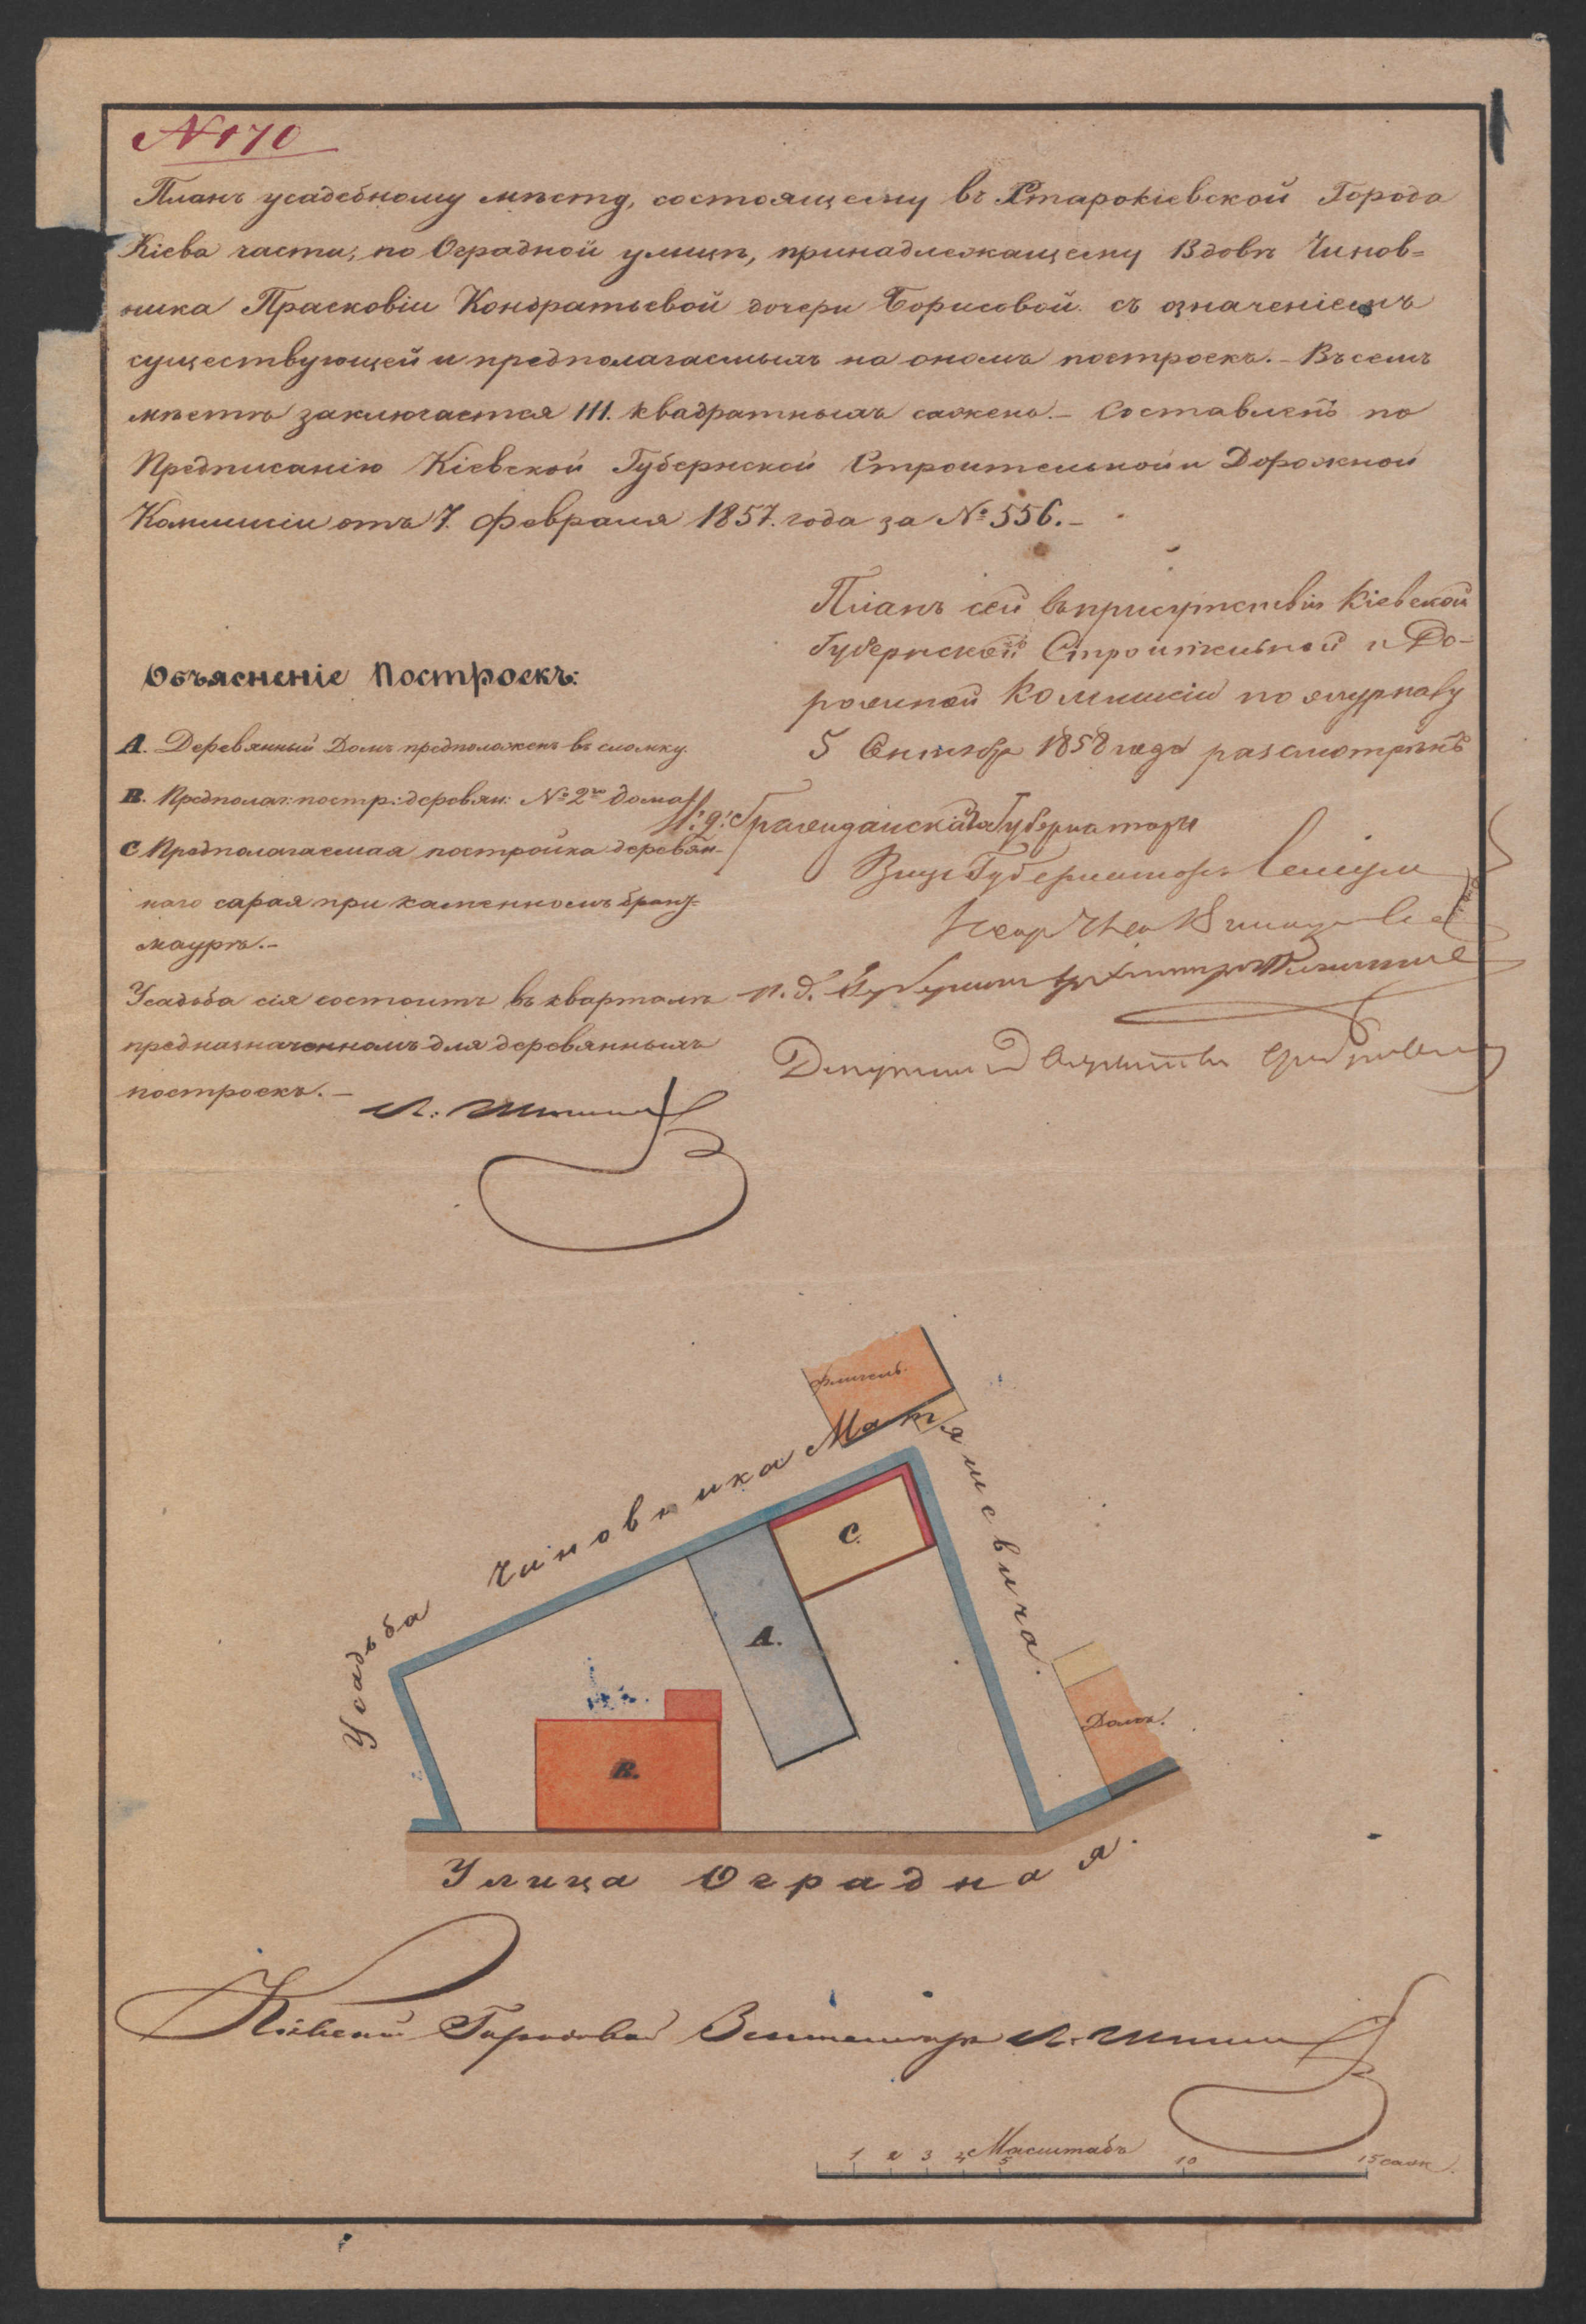 № 170
Планъ усадебному мѣсту, состоящему въ Старокіевской Города
Кіева части, по Оградной улицѣ, принадлежащему Вдовѣ Чинов=
ника Прасковіи Кондратьевой дочери Борисовой. съ означеніемъ
существующей и предполагаемыхъ на ономъ построекъ. – Въ семъ
мѣстѣ заключается 111. квадратныхъ сажень. – Составленъ по
Предписанію Кіевской Губернской Строительной и Дорожной
Коммисіи отъ 7. Февраля 1857. года за № 556. –
Планъ сей въ присутствіи Кіевской
Губернской Строительной и До-
рожной Коммисіи по журналу
5 Сентября 1858 года разсмотрѣнъ
Объясненіе Построекъ:
А. Деревянный Домъ предположенъ въ сломку.
В. Предполаг: постр: деревян: № 2го дома
С Предполагаемая постройка деревян-
наго сарая при каменномъ бранд=
маурѣ. –
Усадьба сія состоитъ въ кварталѣ
предназначенномъ для деревянныхъ
построекъ. –
И: д: Гражданскаго Губернатора
Вице Губернаторъ
и. д. Губернск. Архитектора
Депутатъ Дворянства
Флигель.
Усадьба Чиновника Матяшевича.
С.
А.
В.
Домъ.
Улица Оградная.
Кіевскій Городовой Землемѣръ
Масштабъ
1 2 3 4 5 10 15 саж.